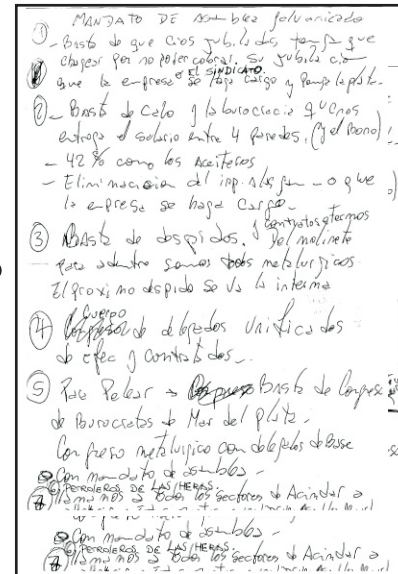 MANDATO DE Asamblea
① - Basta de que cios jubilados tenga que
chagar por no poder cobrar. Su jubilacion
que la empresa o EL SINDICATO. se haga cargo y ponga la plata.
② - Basta de Calo y la burocracia que nos
entrega el salario entre 4 paredes. (y el Bono)
- 42 % como los Aceiteros
- Eliminacion del imp. - o que
la empresa se haga cargo.
③ BASTA de despidos. y contratos a termos
Del molinete
para adentro somos todos metalurgicos
El proximo despido se va la interna
④ Cuerpo de delegados Unificados
de efec y contratados -
⑤ Para Pelear Basta de Congreso
de Burocratas de Mar del plata.
Congreso metalurgico con delegados de Base
Con mandato de asamblea -
⑥ PETROLEROS DE LAS HERAS.
⑦ llamamos a todos los sectores de Acindar a
Con mandato de asamblea -
⑥ PETROLEROS DE LAS HERAS.
⑦ llamamos a todos los sectores de Acindar a